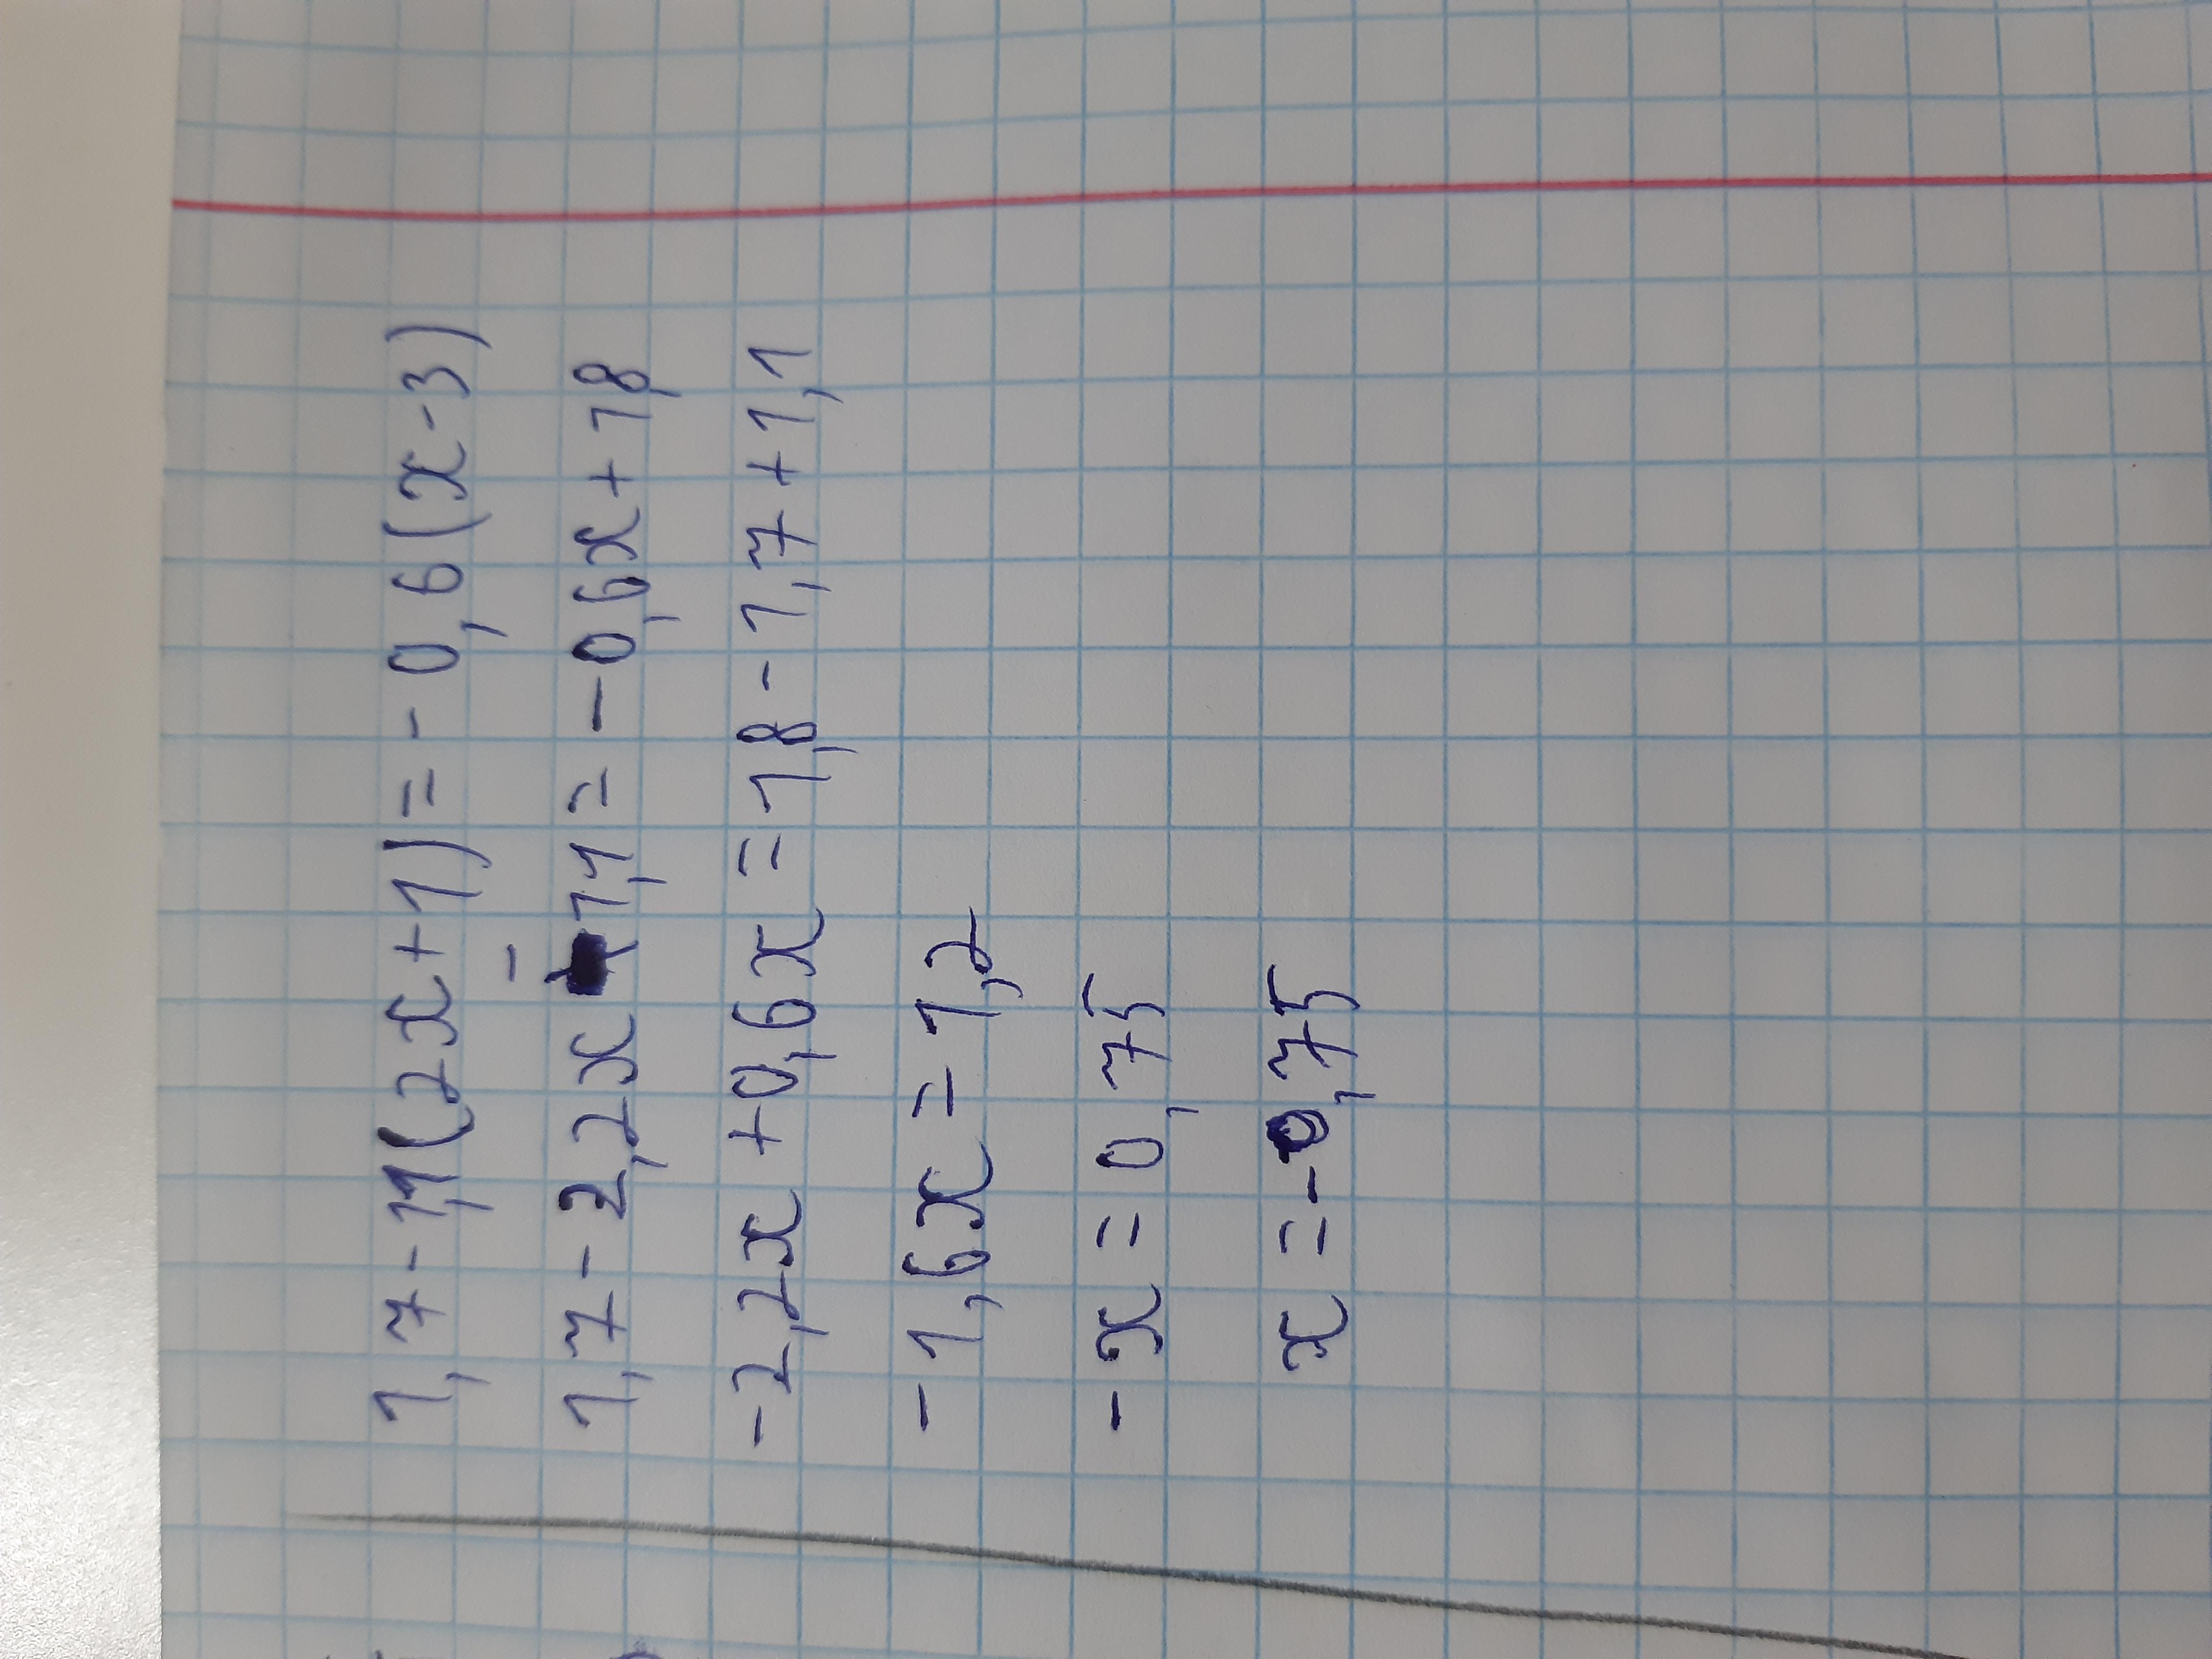 1,7-1,1(2x+1)=-0,6(x-3)
1,7-2,2x-1,1=-0,6x+1,8
-2,2x+0,6x=1,8-1,7+1,1
-1,6x=1,2
-x=0,75
x=-0,75